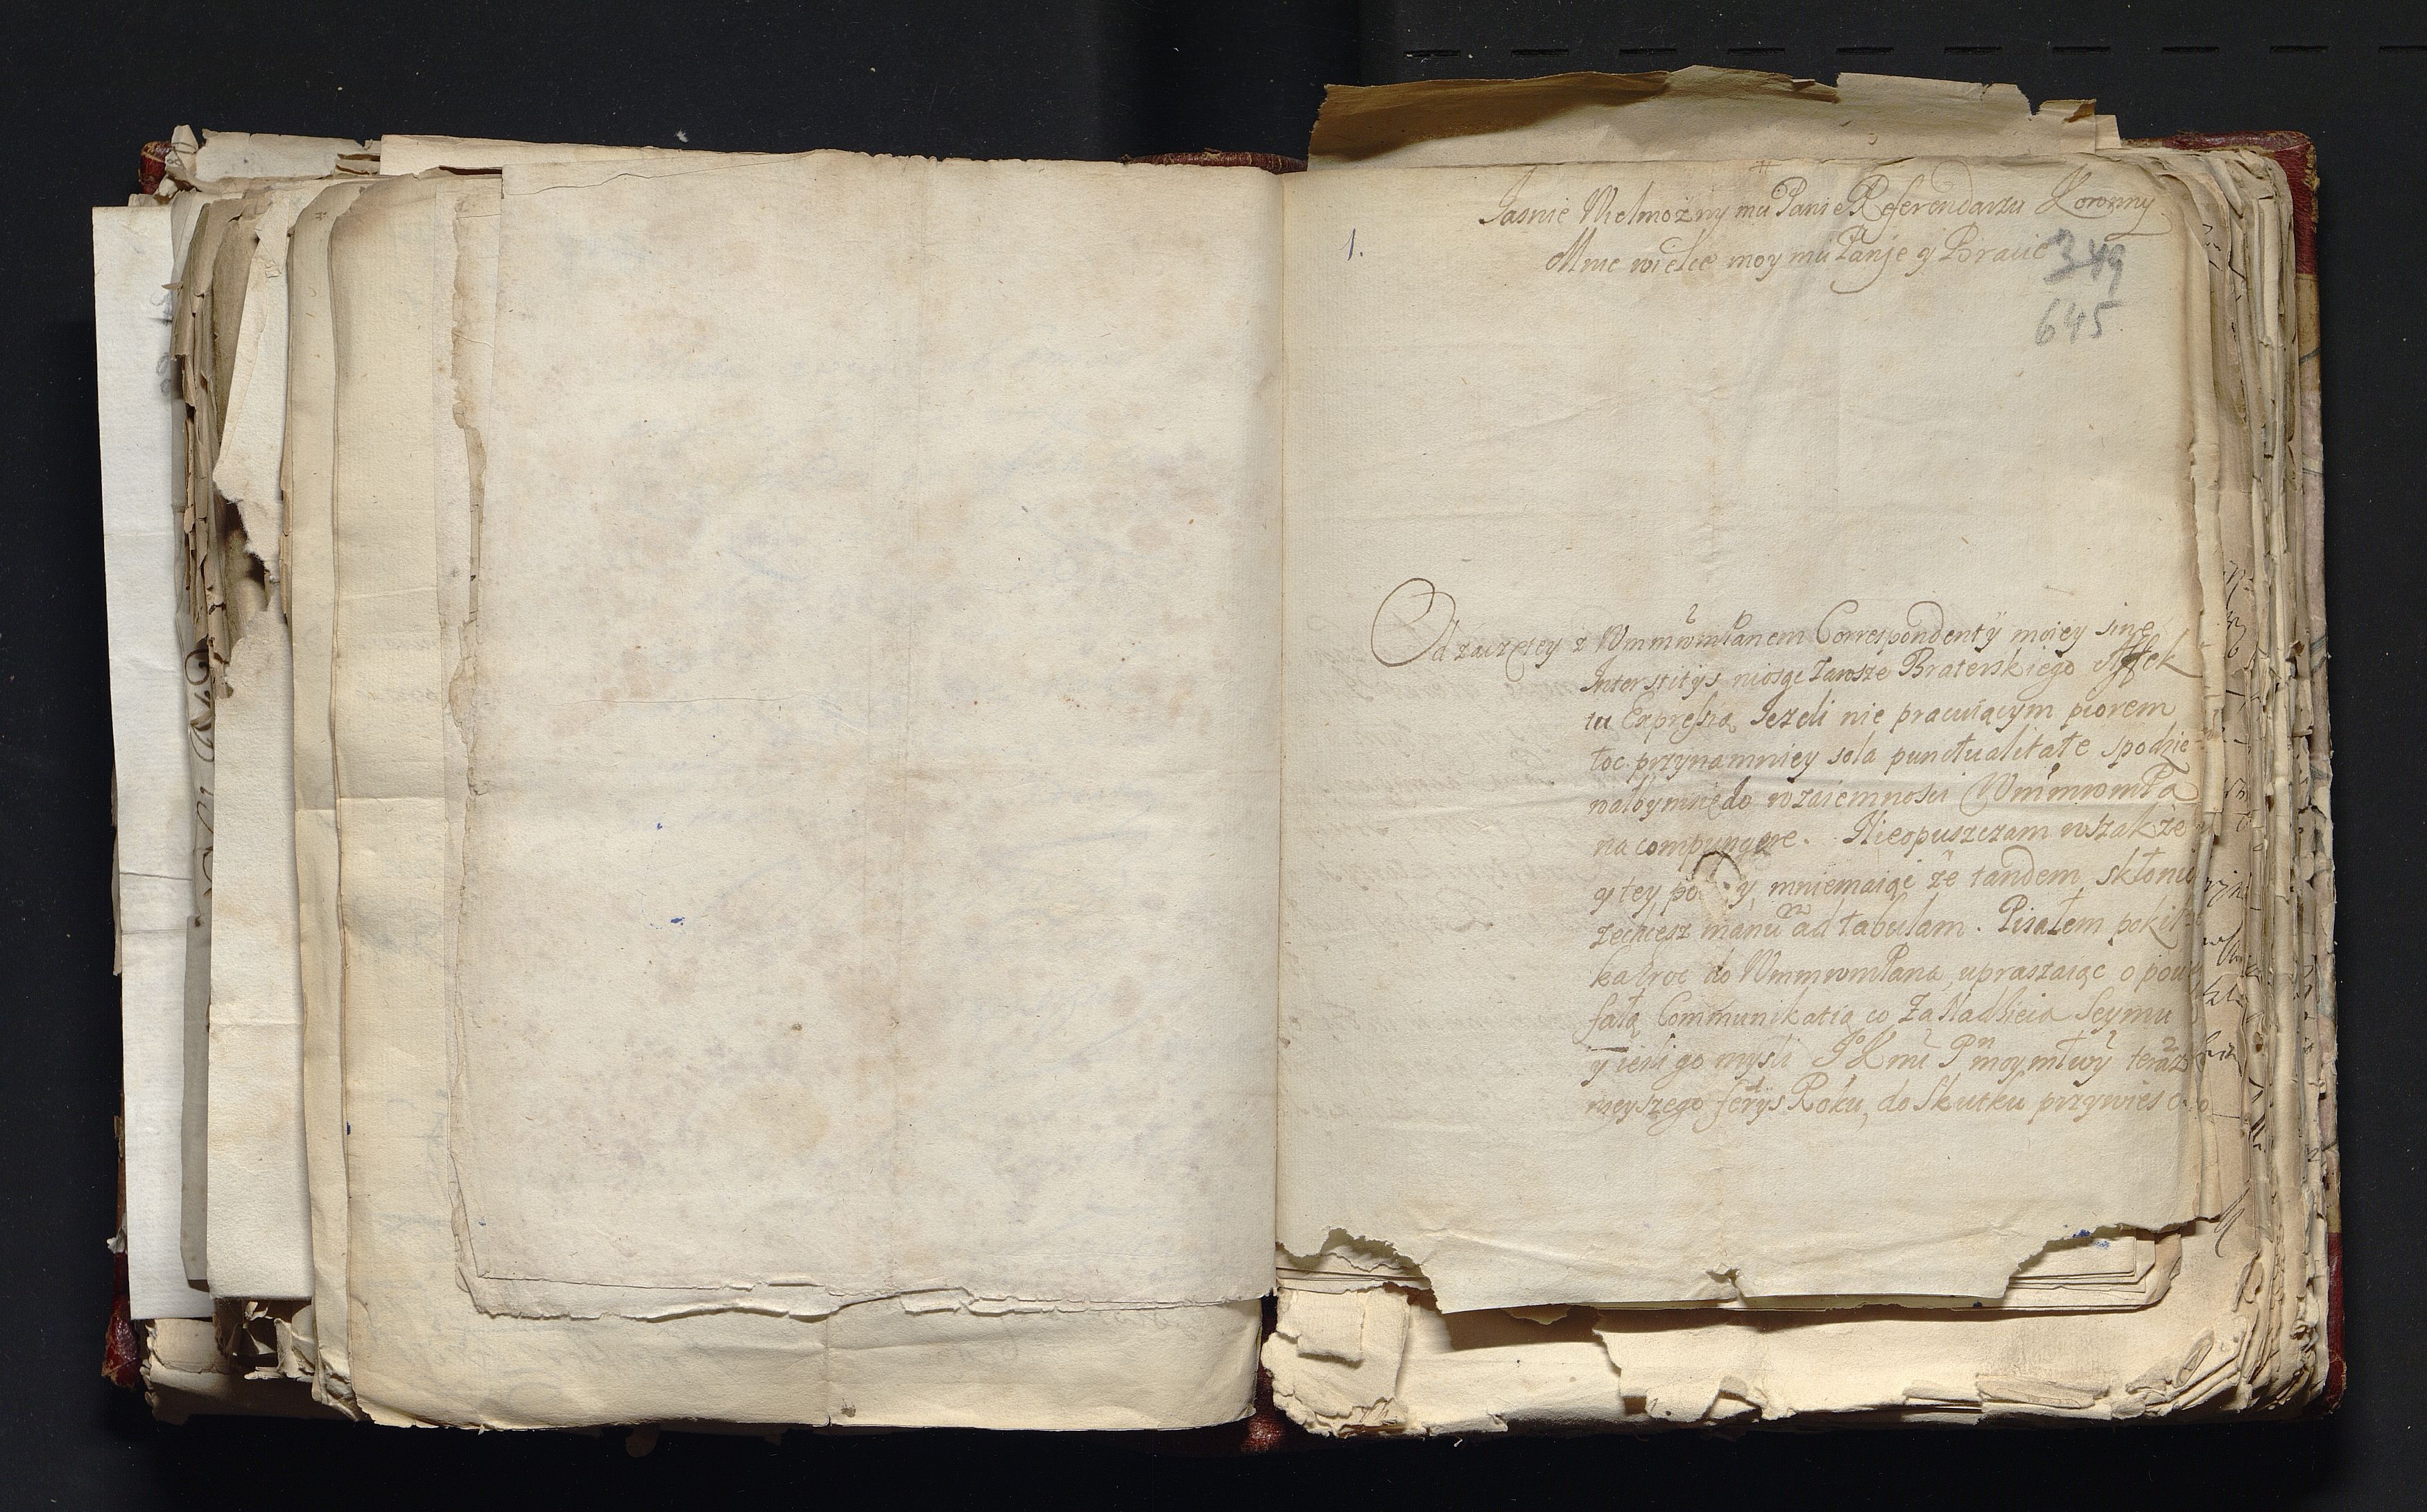 Jasnie Wielmożny mu Panie Referendarzu Koronny
1.
Mnie wielce moy mu Panie y Bracie
349
645
Od zaczętey z WmmwmPanem Correspondentÿ moiey sine
Interstitÿs niosąc zawsze Braterskiego Affek
tu Expressią Jezeli nie pracuiącym piorem
toc przynamniey sola punctualitate spodzie
walbym się do wzaiemnosci WmmwmPa
na compungere. Nieopuszczam wszakże
y tey, mniemaiąc że tandem skłonic
zechcesz manū ad tabulam. Pisałem po kil
ka kroc do WmmwmPana, upraszaiąc o pouf
fałą Communikatią co za Nadzieia Seymu
y iesli go mysli JKmć Pn moy młwy teraz
nieyszego Roku, do Skutku przywiesc